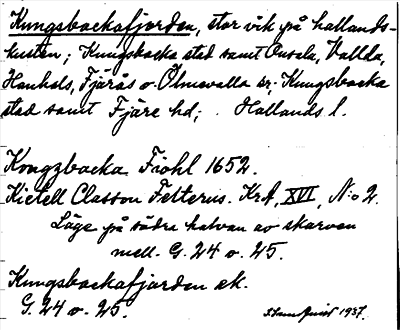 Kungsbackafjorden, stor vik på hallands-
kusten; Kungsbacka stad samt Onsala, Vallda,
Hanhals, Fjärås o. Ölmevalla sr; Kungsbacka
stad samt Fjäre hd; . Hallands l.
Kongzbacka Fiohl 1652.
Kietell Classon Felterus. KrA, XVI, N:o 2.
Läge på södra halvan av skarven
mell. G. 24 o. 25.
Kungsbackafjorden ek.
G. 24 o. 25.
1937.